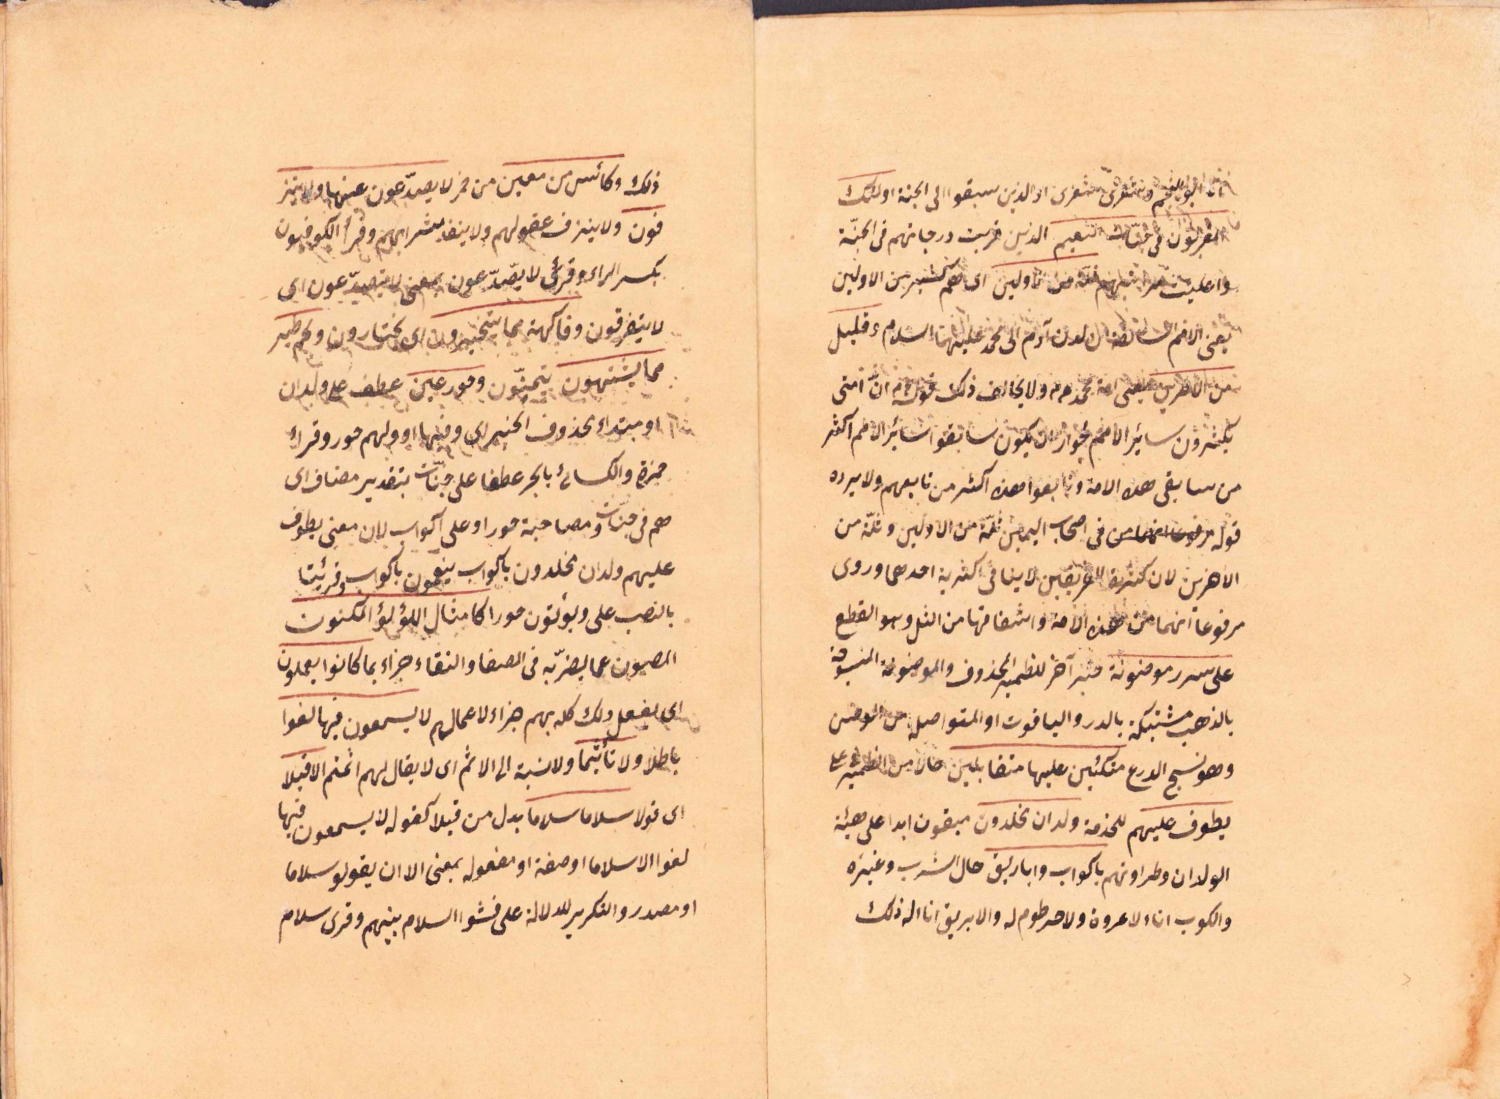 انا ابو النجم وشعرى شعرى او الذين سبقوا الى الجنة اولئك
المقربون فى جنات النعيم الذين قربت درجاتهم فى الجنّة
واعليت مراتبهم ثلة من الاولين اى هم كثير من الاولين
يعنى الامم السالفة من لدن آدم الى محمد عليهما السلام وقليل
من الآخرين يعنى امة محمد م م ولا يخالف ذلك قوله م انّ امتى
يكثرون سائر الامم لجواز ان يكون سابقوا سائر الامم اكثر
من سابقى هذه الامة وتابعوا هذه اكثر من تابعهم ولا يرده
قوله فى اصحاب اليمين ثلّة من الاولين وثلّة من
الآخرين لان كثرة الفريقين لا ينافى اكثرية احدهما وروى
مرفوعا انهما من هذه الامة واشتقاقها من الثل وهو القطع
على سرر موضونة خبر آخر للضمير المحذوف والموضونة المنسوجة
بالذهب مشتبكة بالدر والياقوت او المتواصلة من الوضن
وهو نسج الدرع متكئين عليها متقابلين حالان من الضمير فى على
يطوف عليهم للخدمة ولدان مخلدون مبقون ابدا على هيئة
الولدان وطراوتهم باكواب واباريق حال الشرب وغيره
والكوب اناء لا عروة ولا خرطوم له والابريق اناء له ذلك
ذلك وكائس من معين من خمر لا يصدّعون عنها ولا ينز
فون ولا ينزف عقولهم ولا ينفد شرابهم وقرأ الكوفيون
بكسر الزاء وقرئ لا يصّدّعون بمعنى لا يتصدّعون اى
لا يتفرقون وفاكهة مما يتخيرون اى يختارون ولحم طير
مما يشتهون يتمنّون وحور عين عطف على ولدان
او مبتداء محذوف الخبر اى وفيها او ولهم حور وقراء
حمزة والكسائ بالجر عطفا على جنّات بتقدير مضاف اى
هم فى جنّات ومصاحبة حور او على اكواب لان معنى يطوف
عليهم ولدان مخلدون باكواب ينعمون باكواب وقرئيتا
بالنصب على ويؤتون حورا كامثال اللؤلؤ المكنون
المصون عما يضرّ به فى الصفا والنقاء جزاء بما كانوا يعملون
اى يفعل ذلك كله بهم جزاء لاعمالهم لا يسمعون فيها لغوا
باطلا ولا تأثيما ولا نسبة الى الاثم اى لا يقال لهم اثمتم الا قيلا
اى قولا سلاما سلاما بدل من قيلا كقوله لا يسمعون فيها
لغوا الا سلاما او صفة او مفعوله بمعنى الا ان يقولو سلاما
او مصدر والتكرير للدلالة على فشوا السلام بينهم وقرى سلام